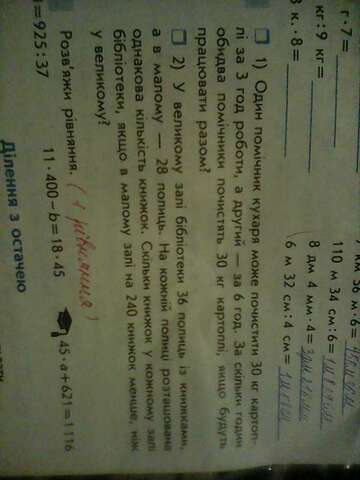 г · 7 =
кг : 9 кг =
к. · 8 =
м · 6 =
110 м 34 см : 6 =
8 дм 4 мм · 4 =
6 м 32 см : 4 см =
1) Один помічник кухаря може почистити 30 кг картоп-
лі за 3 год роботи, а другий — за 6 год. За скільки годин
обидва помічники почистять 30 кг картоплі, якщо будуть
працювати разом?
2) У великому залі бібліотеки 36 полиць із книжками,
а в малому — 28 полиць. На кожній полиці розташована
однакова кількість книжок. Скільки книжок у кожному залі
бібліотеки, якщо в малому залі на 240 книжок менше, ніж
у великому?
Розв'яжи рівняння. (1 рівняння)
= 925 : 37
11 · 400 – b = 18 · 45
45 · a + 621 = 1116
Ділення з остачею